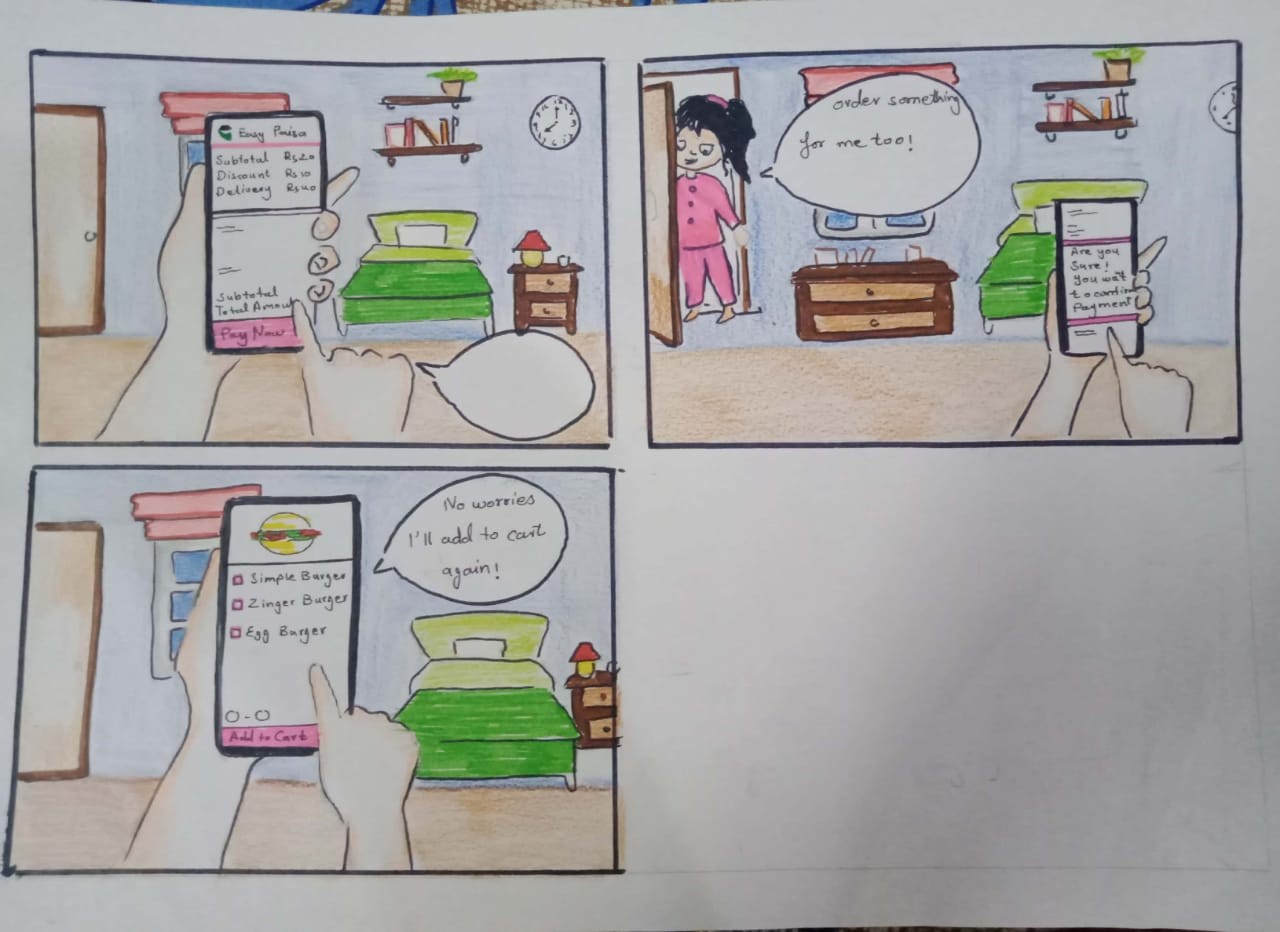 Easy Paisa
Subtotal Rs20
Discount Rs10
Delivery Rs40
Subtotal
Total Amoun
Pay Now
order something
for me too!
Are you
Sure!
you wat
to confirm
Payment
No worries
I'll add to cart
again!
Simple Burger
Zinger Burger
Egg Burger
Add to Cart